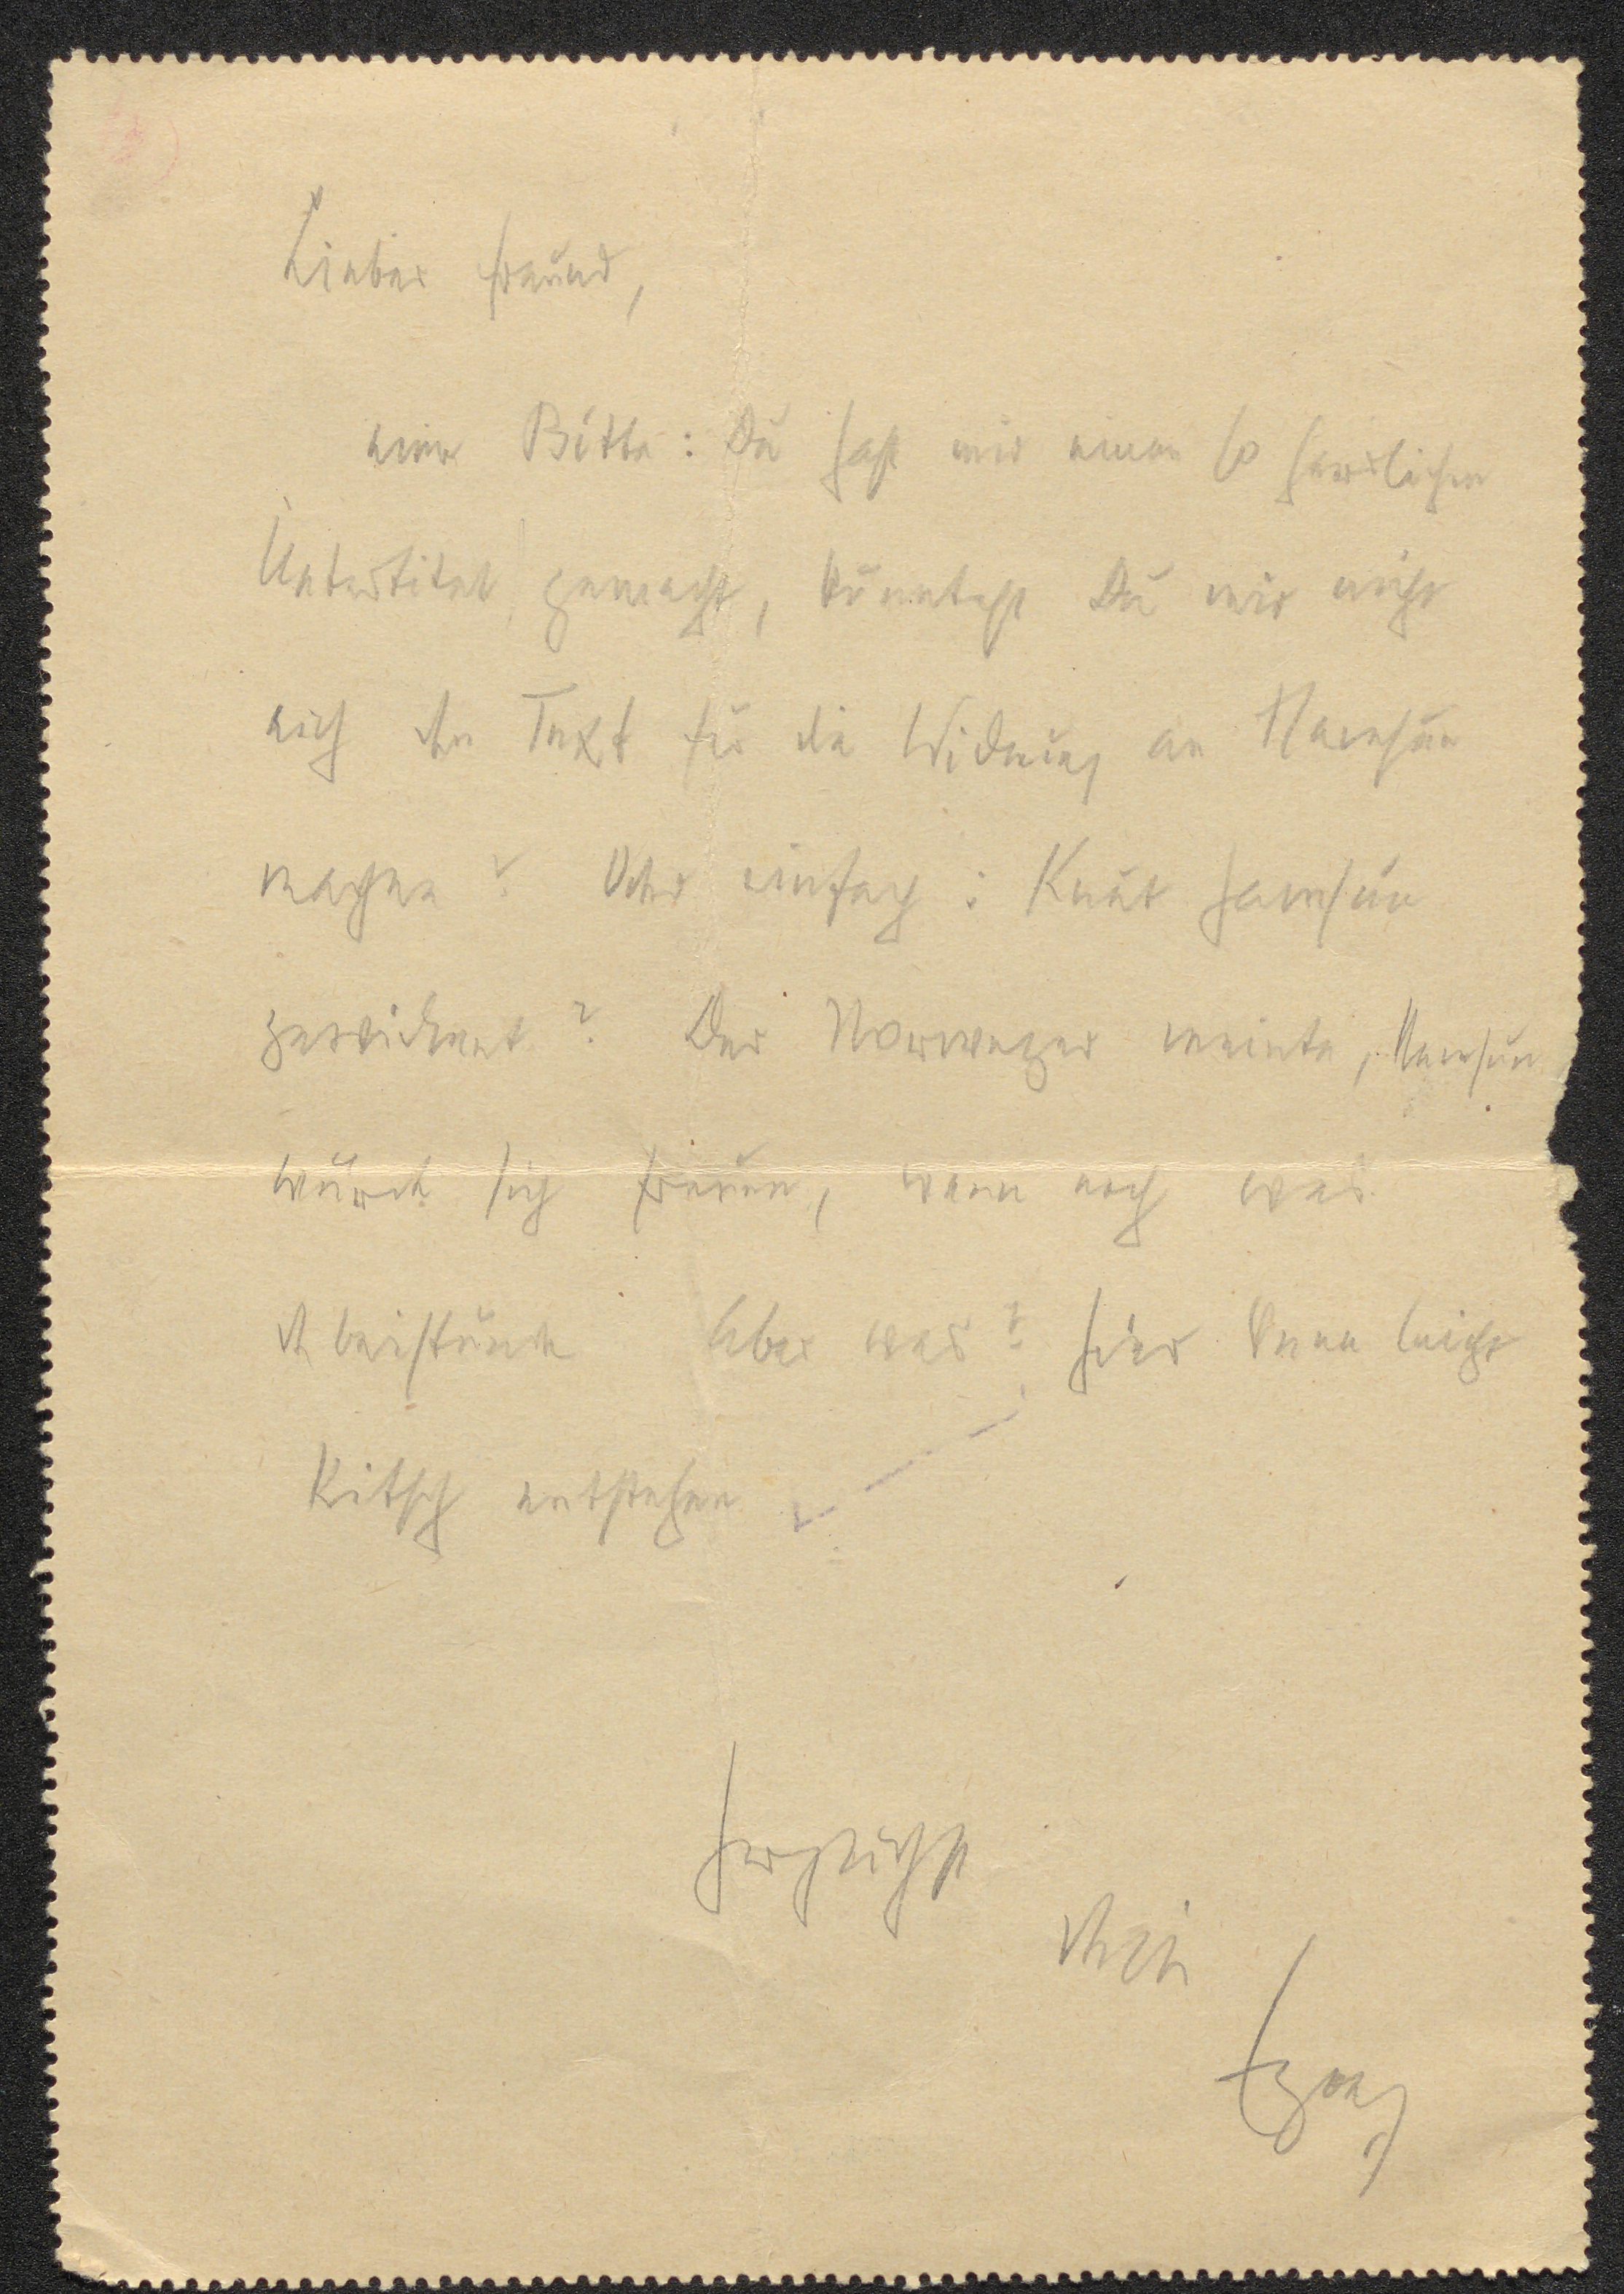 Lieber Freund,
eine Bitte: Du hast mir einen so herrlichen
Untertitel gemacht, könntest Du mir nicht
auch den Text für die Widmung an Hamsun
machen? Oder einfach: Knut Hamsun
gewidmet? Der Norweger meinte, Hamsun
würde sich freuen, wenn noch was
dabeistünde Aber was? Hier kann leicht
Kitsch entstehen
Herzlichst
Dein